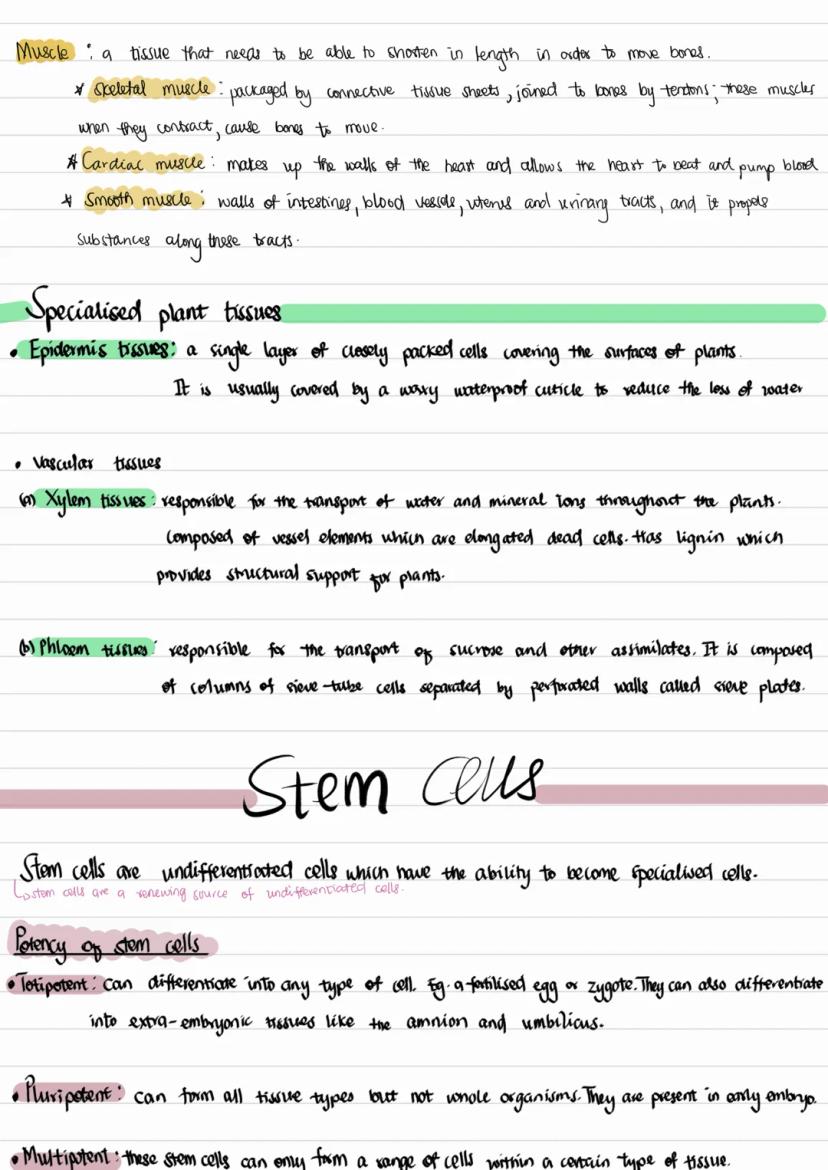 Muscle : a tissue that needs to be able to shorten in length in order to move bones.
* Skeletal muscle : packaged by connective tissue sheets, joined to bones by tendons; these muscles
when they contract, cause bones to move.
* Cardiac muscle : makes up the walls of the heart and allows the heart to beat and pump blood
* Smooth muscle : walls of intestines, blood vessels, uterus and urinary tracts, and it propels
substances along these tracts.
Specialised plant tissues
• Epidermis tissues: a single layer of closely packed cells covering the surfaces of plants.
It is usually covered by a waxy waterproof cuticle to reduce the loss of water
• Vascular tissues
(a) Xylem tissues : responsible for the transport of water and mineral ions throughout the plants.
Composed of vessel elements which are elongated dead cells. Has lignin which
provides structural support for plants.
(b) Phloem tissues : responsible for the transport of sucrose and other assimilates. It is composed
of columns of sieve-tube cells separated by perforated walls called sieve plates.
Stem Cells
Stem cells are undifferentiated cells which have the ability to become specialised cells.
↳ stem cells are a renewing source of undifferentiated cells.
Potency of stem cells
• Totipotent : can differentiate into any type of cell. Eg. a fertilised egg or zygote. They can also differentiate
into extra-embryonic tissues like the amnion and umbilicus.
• Pluripotent : can form all tissue types but not whole organisms. They are present in early embryo.
• Multipotent : these stem cells can only form a range of cells within a certain type of tissue.